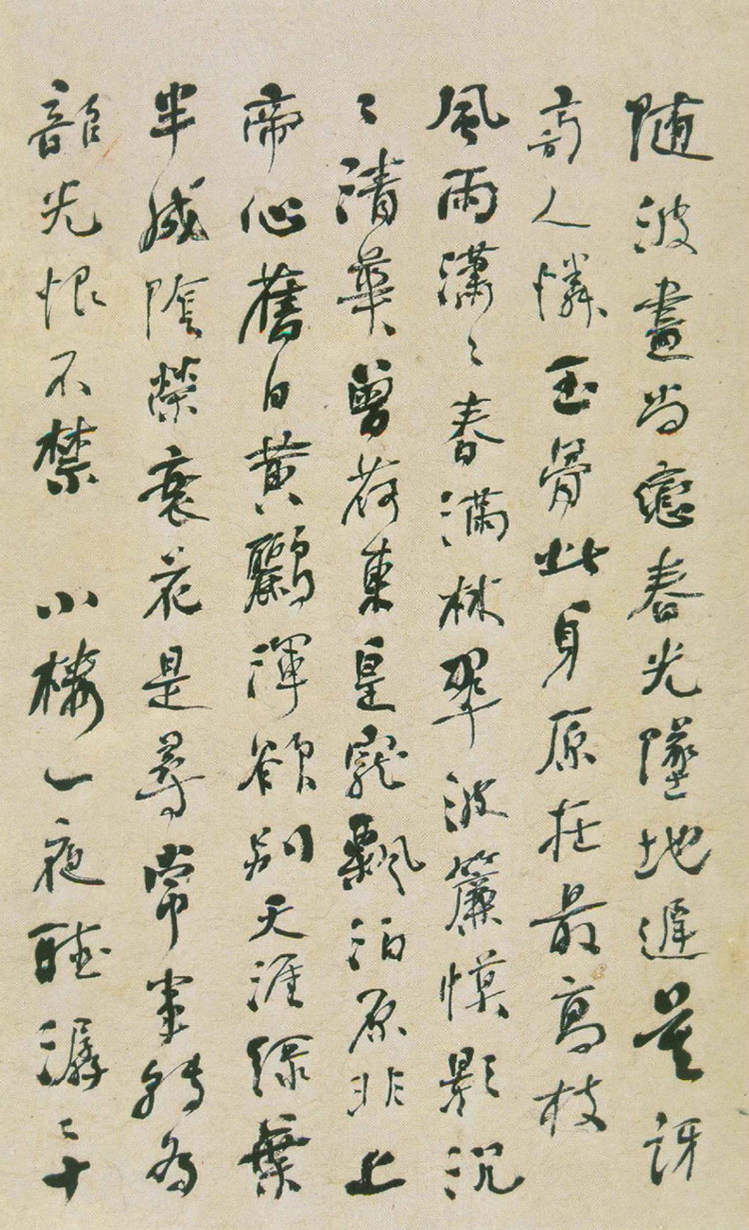 隨波盡尚戀春光墜地遲莫訝
旁人憐玉骨此身原在最高枝
風雨瀟〻春滿林翠波簾幙影沉
〻清華曾荷東皇寵飄泊原非上
帝心舊日黃鸝渾欲別天涯綠葉
半成陰榮衰花是尋常事轉為
韶光恨不禁 小樓一夜聽潺〻十